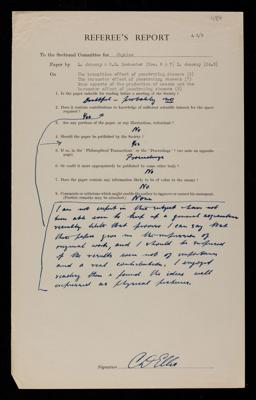 484
REFEREE'S REPORT
To the Sectional Committee for Physics
Paper by L. Janossy & G.D. Rochester (Nos. 5 & 7) L. Janossy (6&8)
On The transition effect of penetrating showers (5)
The barometer effect of penetrating showers (7)
Some aspects of the production of mesons and the
barometer effect of penetrating showers (8)
1. Is the paper suitable for reading before a meeting of the Society?
Doubtful - probably no
2. Does it contain contributions to knowledge of sufficient scientific interest for the space
required?
Yes
3. Are any portions of the paper, or any illustrations, redundant?
No
4. Should the paper be published by the Society?
Yes
5. If so, in the "Philosophical Transactions" or the "Proceedings"? (see note on opposite
page)
Proceedings
6. Or could it more appropriately be published by some other body?
No
7. Does the paper contain any information likely to be of value to the enemy?
No
8. Comments or criticisms which might enable the author to improve or correct his manuscript.
(Further remarks may be attached.)
None
I am not expert in this subject & have not
been able even to keep up a general
recently. With that proviso I can say that
these papers gave me the impression of
original work, and I should be surprised
if the results were not of importance
and a real contribution. I enjoyed
reading them & found the ideas well
expressed as physical pictures.
Signature C D Ellis